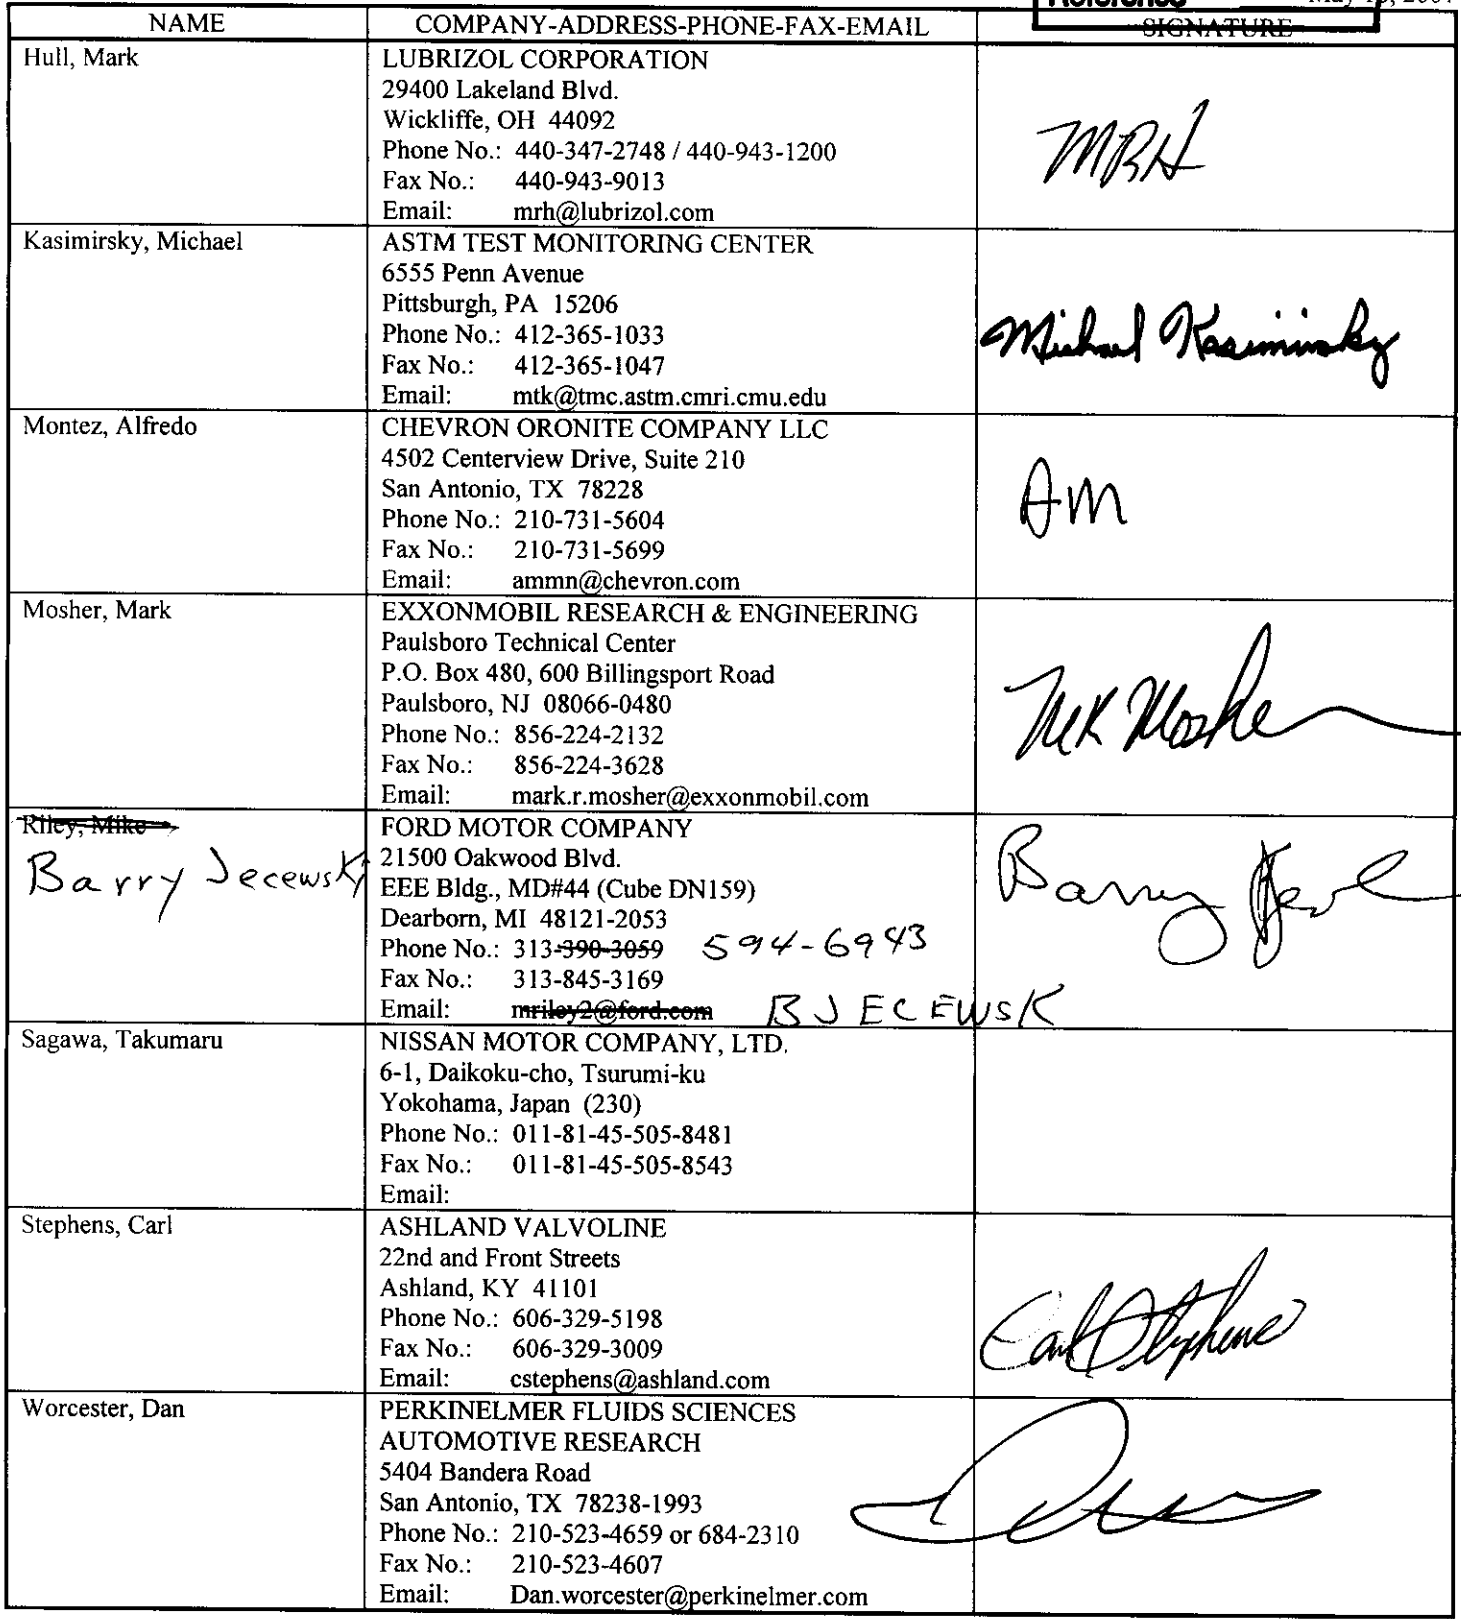 Reference
NAME COMPANY-ADDRESS-PHONE-FAX-EMAIL SIGNATURE
Hull, Mark LUBRIZOL CORPORATION
29400 Lakeland Blvd.
Wickliffe, OH 44092
Phone No.: 440-347-2748 / 440-943-1200
Fax No.: 440-943-9013
Email: mrh@lubrizol.com
MRH
Kasimirsky, Michael ASTM TEST MONITORING CENTER
6555 Penn Avenue
Pittsburgh, PA 15206
Phone No.: 412-365-1033
Fax No.: 412-365-1047
Email: mtk@tmc.astm.cmri.cmu.edu
Michael Kasimirsky
Montez, Alfredo CHEVRON ORONITE COMPANY LLC
4502 Centerview Drive, Suite 210
San Antonio, TX 78228
Phone No.: 210-731-5604
Fax No.: 210-731-5699
Email: ammn@chevron.com
AM
Mosher, Mark EXXONMOBIL RESEARCH & ENGINEERING
Paulsboro Technical Center
P.O. Box 480, 600 Billingsport Road
Paulsboro, NJ 08066-0480
Phone No.: 856-224-2132
Fax No.: 856-224-3628
Email: mark.r.mosher@exxonmobil.com
Mosher
Riley, Mike FORD MOTOR COMPANY
Barry Jecewski 21500 Oakwood Blvd.
EEE Bldg., MD#44 (Cube DN159)
Dearborn, MI 48121-2053
Phone No.: 313-390-3059 594-6943
Fax No.: 313-845-3169
Email: mriley2@ford.com BJECEWSK
Barry
Sagawa, Takumaru NISSAN MOTOR COMPANY, LTD.
6-1, Daikoku-cho, Tsurumi-ku
Yokohama, Japan (230)
Phone No.: 011-81-45-505-8481
Fax No.: 011-81-45-505-8543
Email:
Stephens, Carl ASHLAND VALVOLINE
22nd and Front Streets
Ashland, KY 41101
Phone No.: 606-329-5198
Fax No.: 606-329-3009
Email: cstephens@ashland.com
Carl Stephens
Worcester, Dan PERKINELMER FLUIDS SCIENCES
AUTOMOTIVE RESEARCH
5404 Bandera Road
San Antonio, TX 78238-1993
Phone No.: 210-523-4659 or 684-2310
Fax No.: 210-523-4607
Email: Dan.worcester@perkinelmer.com